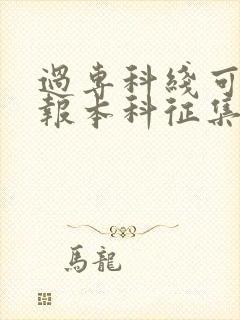 過專科綫可
報本科征集
馬龍